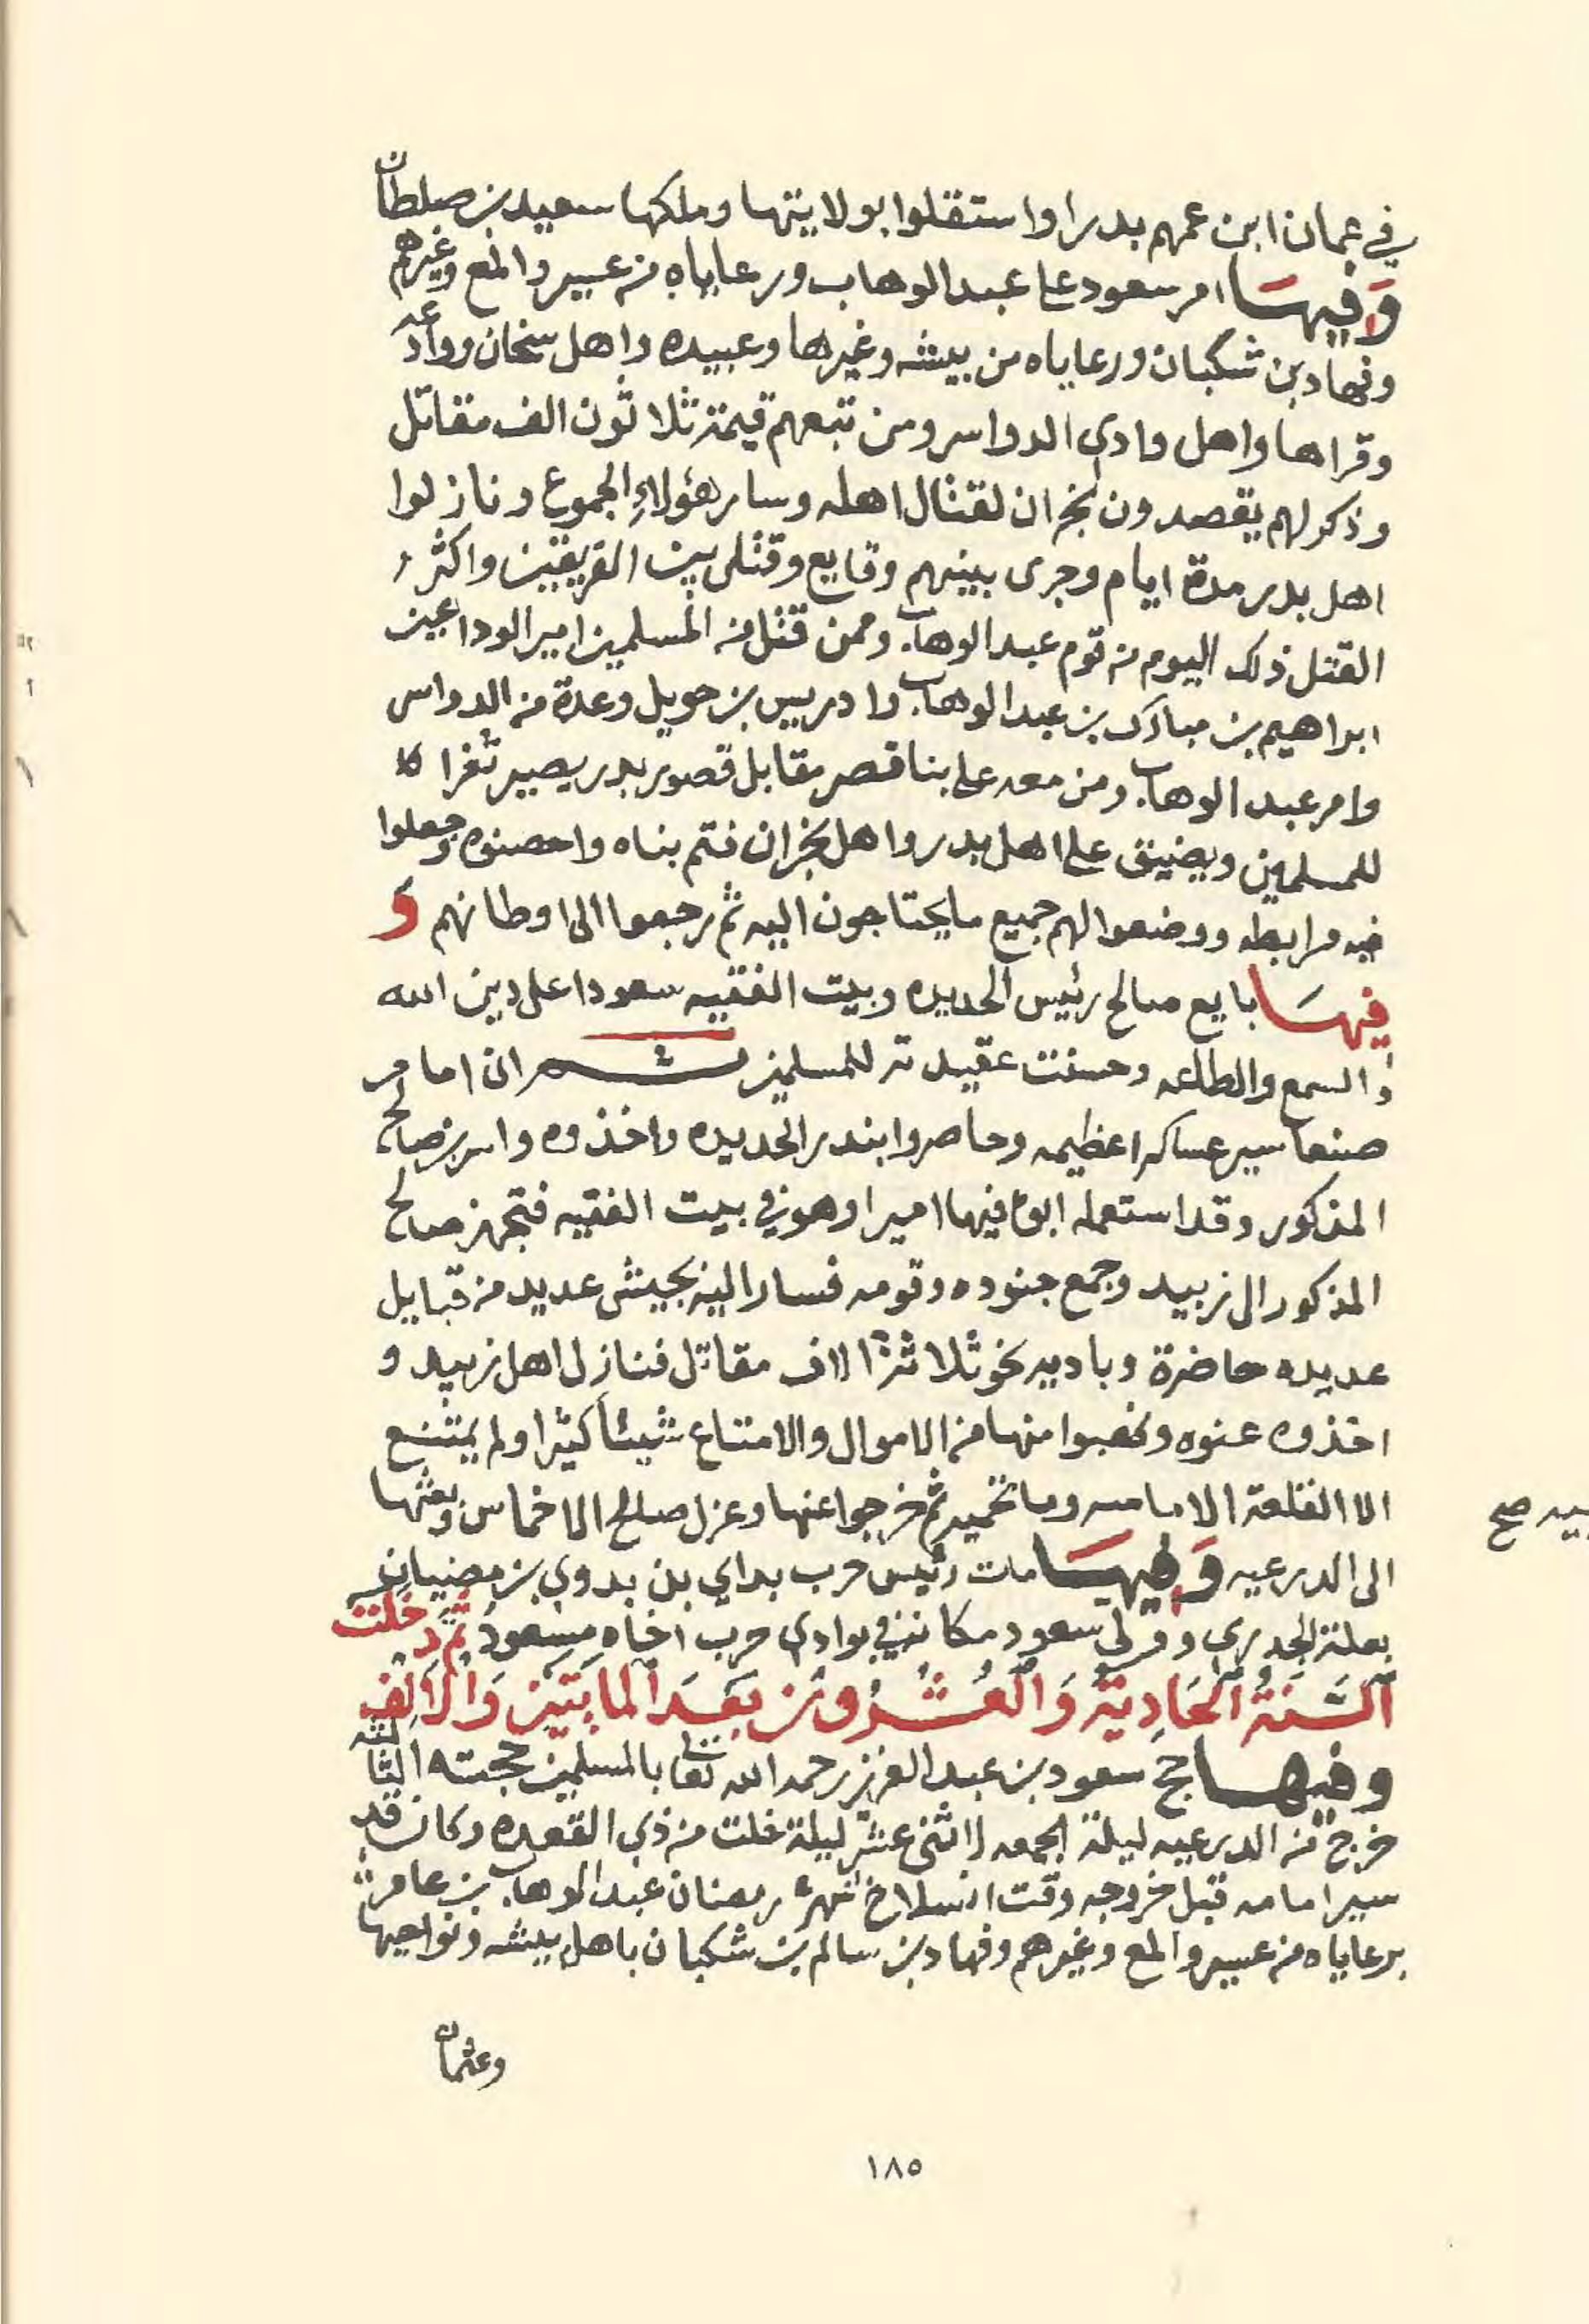 في عمان ابن عمهم بدرا واستقلوا بولايتها وملكها سعيد بن صلطان
وَفيهَا امر سعود على عبدالوهاب ورعاياه من عسير والمع وغيرهم
وفهاد بن شكبان ورعاياه من بيشه وغيرها وعبيده واهل سنحان ووادعه
وقراها واهل وادي الدواسر ومن تبعهم قيمة ثلاثون الف مقاتل
وذكر لهم يقصدون نجران لقتال اهله وسار هؤلاءِ الجموع ونازلوا
اهل بدر مدة ايام وجرى بينهم وقايع وقتلى بين الفريقين واكثر
القتل ذلك اليوم من قوم عبدالوهاب وممن قتل من المسلمين امير الوداعين
ابراهيم بن مبارك بن عبدالوهاب وادريس بن حويل وعدة من الدواسر
وامر عبدالوهاب ومن معه على بنا قصر مقابل قصور بدر يصير ثغرا
للمسلمين ويضيق على اهل بدر واهل نجران فتم بناه واحصنوه وجعلوا
فيه مرابطه ووضعوا لهم جميع ما يحتاجون اليه ثم رجعوا الى اوطانهم وَ
فيهَا بايع صالح رئيس الحديده وبيت الفقيه سعودا على دين الله
والسمع والطاعه وحسنت عقيدته للمسلمين ثم ان امام
صنعا سير عساكرا عظيمه وحاصروا بندر الحديده واخذوه وا بن صالح
المذكور وقد استعمله ابوه فيها اميرا وهو في بيت الفقيه فتجهز صالح
المذكور الى زبيد وجمع جنوده وقومه فسار اليه بجيش عديد من قبايل
عديده حاضرة وباديه نحو ثلاثة الاف مقاتل فنازل اهل زبيد و
اخذوه عنوه ونهبوا منها من الاموال والامتاع شيئاً كثيرا ولم يمتنع
الا القلعة الاماميه وما تحميه ثم خرجوا عنها وعزل صالح الاخماس وبعثها
الى الدرعيه وَفيهَا مات رئيس حرب بداي بن بدوي بن مضيان
بعلة الجدري وولى سعود مكانه في بوادي حرب اخاه مسعود ثم دخلت
اَلسَّنَةُ اَلحَادِيَةُ وَالعُشْرُونَ بَعَدَ المايَتَين وَالاَلِف
وفيها حج سعود بن عبدالعزيز رحمه الله تعالى بالمسلمين حجته الثالثه
خرج من الدرعيه ليلة الجمعه لاثني عشر ليلة خلت من ذي القعده وكان قد
سير امامه قبل خروجه وقت انسلاخ شهر رمضان عبدالوهاب بن عامر
برعاياه من عسير والمع وغيرهم وفهاد بن سالم بن شكبان باهل بيشه ونواحيها
وعثمان
١٨٥